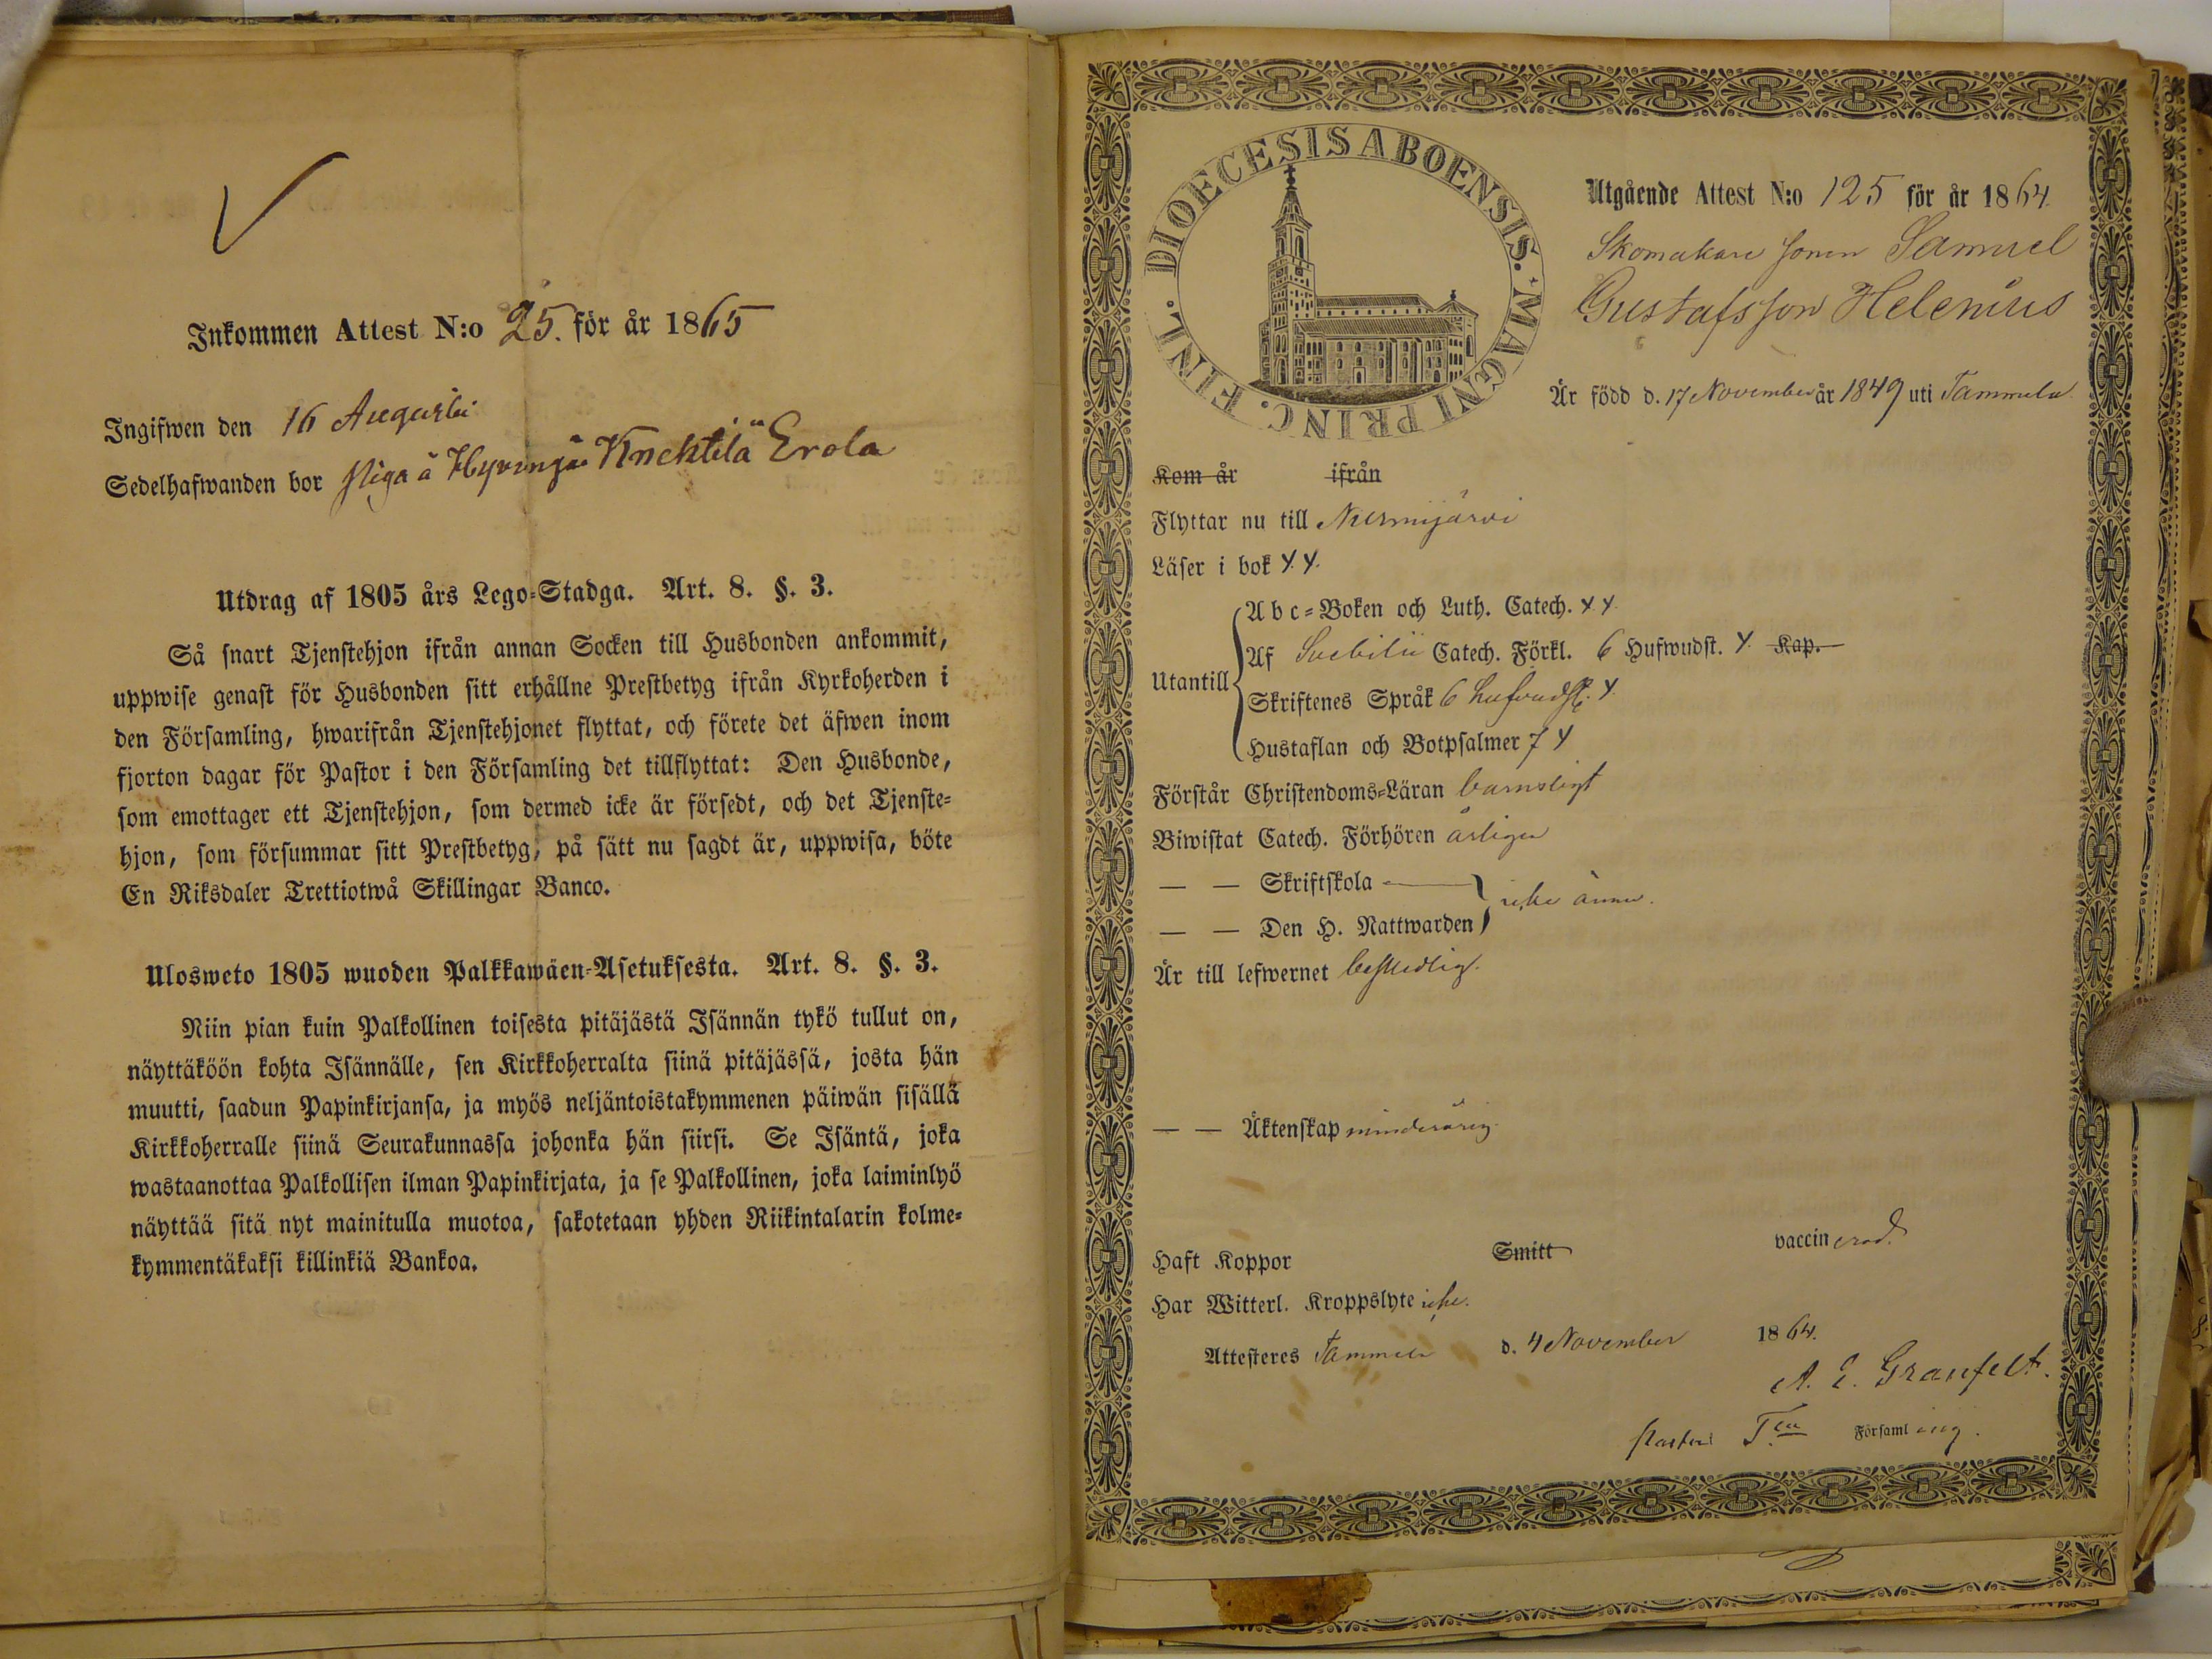 Inkommen Attest N:o 25. för år 1865
Ingifwen den 16 Augusti
Sedelhafwanden bor piga å Hyvinge Knektilä Erola
Utdrag af 1805 års Lego-Stadga. Art. 8. §. 3.
Så snart Tjenstehjon ifrån annan Socken till Husbonden ankommit,
uppwise genast för Husbonden sitt erhållne Prestbetyg ifrån Kyrkoherden i
den Församling, hwarifrån Tjenstehjonet flyttat, och förete det äfwen inom
fjorton dagar för Pastor i den Församling det tillflyttat: Den Husbonde,
som emottager ett Tjenstehjon, som dermed icke är försedt, och det Tjenste-
hjon, som försummar sitt Prestbetyg, på sätt nu sagdt är, uppwisa, böte
En Riksdaler Trettiotwå Skillingar Banco.
Ulosweto 1805 wuoden Palkkawäen-Asetuksesta. Art. 8. §. 3.
Niin pian kuin Palkollinen toisesta pitäjästä Isännän tykö tullut on,
näyttäköön kohta Isännälle, sen Kirkkoherralta siinä pitäjässä, josta hän
muutti, saadun Papinkirjansa, ja myös neljäntoistakymmenen päiwän sisällä
Kirkkoherralle siinä Seurakunnassa johonka hän siirsi. Se Isäntä, joka
wastaanottaa Palkollisen ilman Papinkirjata, ja se Palkollinen, joka laiminlyö
näyttää sitä nyt mainitulla muotoa, sakotetaan yhden Riikintalarin kolme-
kymmentäkaksi killinkiä Bankoa.
DIOECESIS ABOENSIS. MAGNI PRINC. FINL.
Utgående Attest N:o 125 för år 1864.
Skomakare sonen Samuel
Gustafsson Helenius
Är född d. 17 November år 1849 uti Tammela
Kom år ifrån
Flyttar nu till Nurmijärvi
Läser i bok Y Y.
Utantill
Abc-Boken och Luth. Catech. Y Y.
Af Svebilii Catech. Förkl. 6 Hufwudst. Y Kap.
Skriftenes Språk 6 hufvudst. Y.
Hustaflan och Botpsalmer 7 Y
Förstår Christendoms-Läran barnsligt
Biwistat Catech. Förhören årligen
— — Skriftskola
icke ännu.
— — Den H. Nattwarden
Är till lefwernet beskedlig.
— — Äktenskap minderårig.
Haft Koppor Smitt vaccinerad.
Har Witterl. Kroppslyte icke.
Attesteres Tammela d. 4 November 1864.
A. E. Granfelt.
Pastor i T:la Församling.